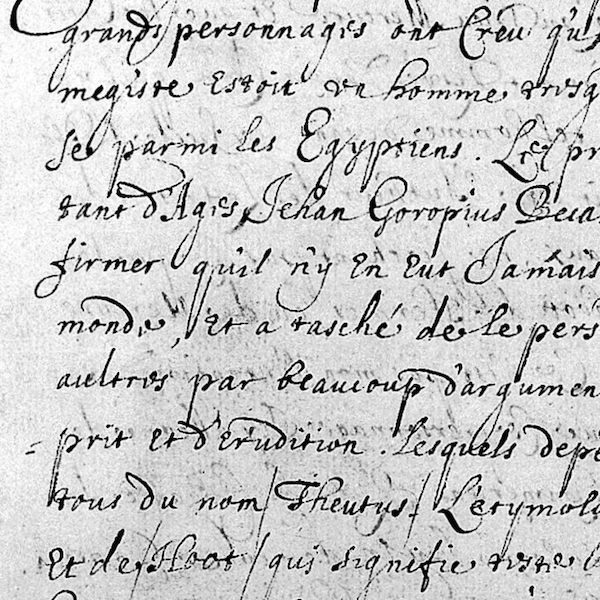 grands personnages ont Creu qu'
megiste Estoit un homme tresg
se parmi les Egyptiens. Les pr
tant d'Ages, Jehan Goropius Beca
firmer qu'il n'y En Eut Jamais
monde, Et a tasché de le pers
aultres par beaucoup d'argumen
prit Et d'Erudition. Lesquels depe
tous du nom Theutus. L'etymolo
Et de Hoot qui signifie teste